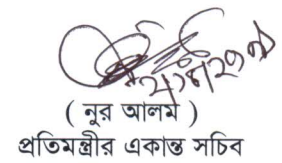 ( নুর আলম )
প্রতিমন্ত্রীর একান্ত সচিব